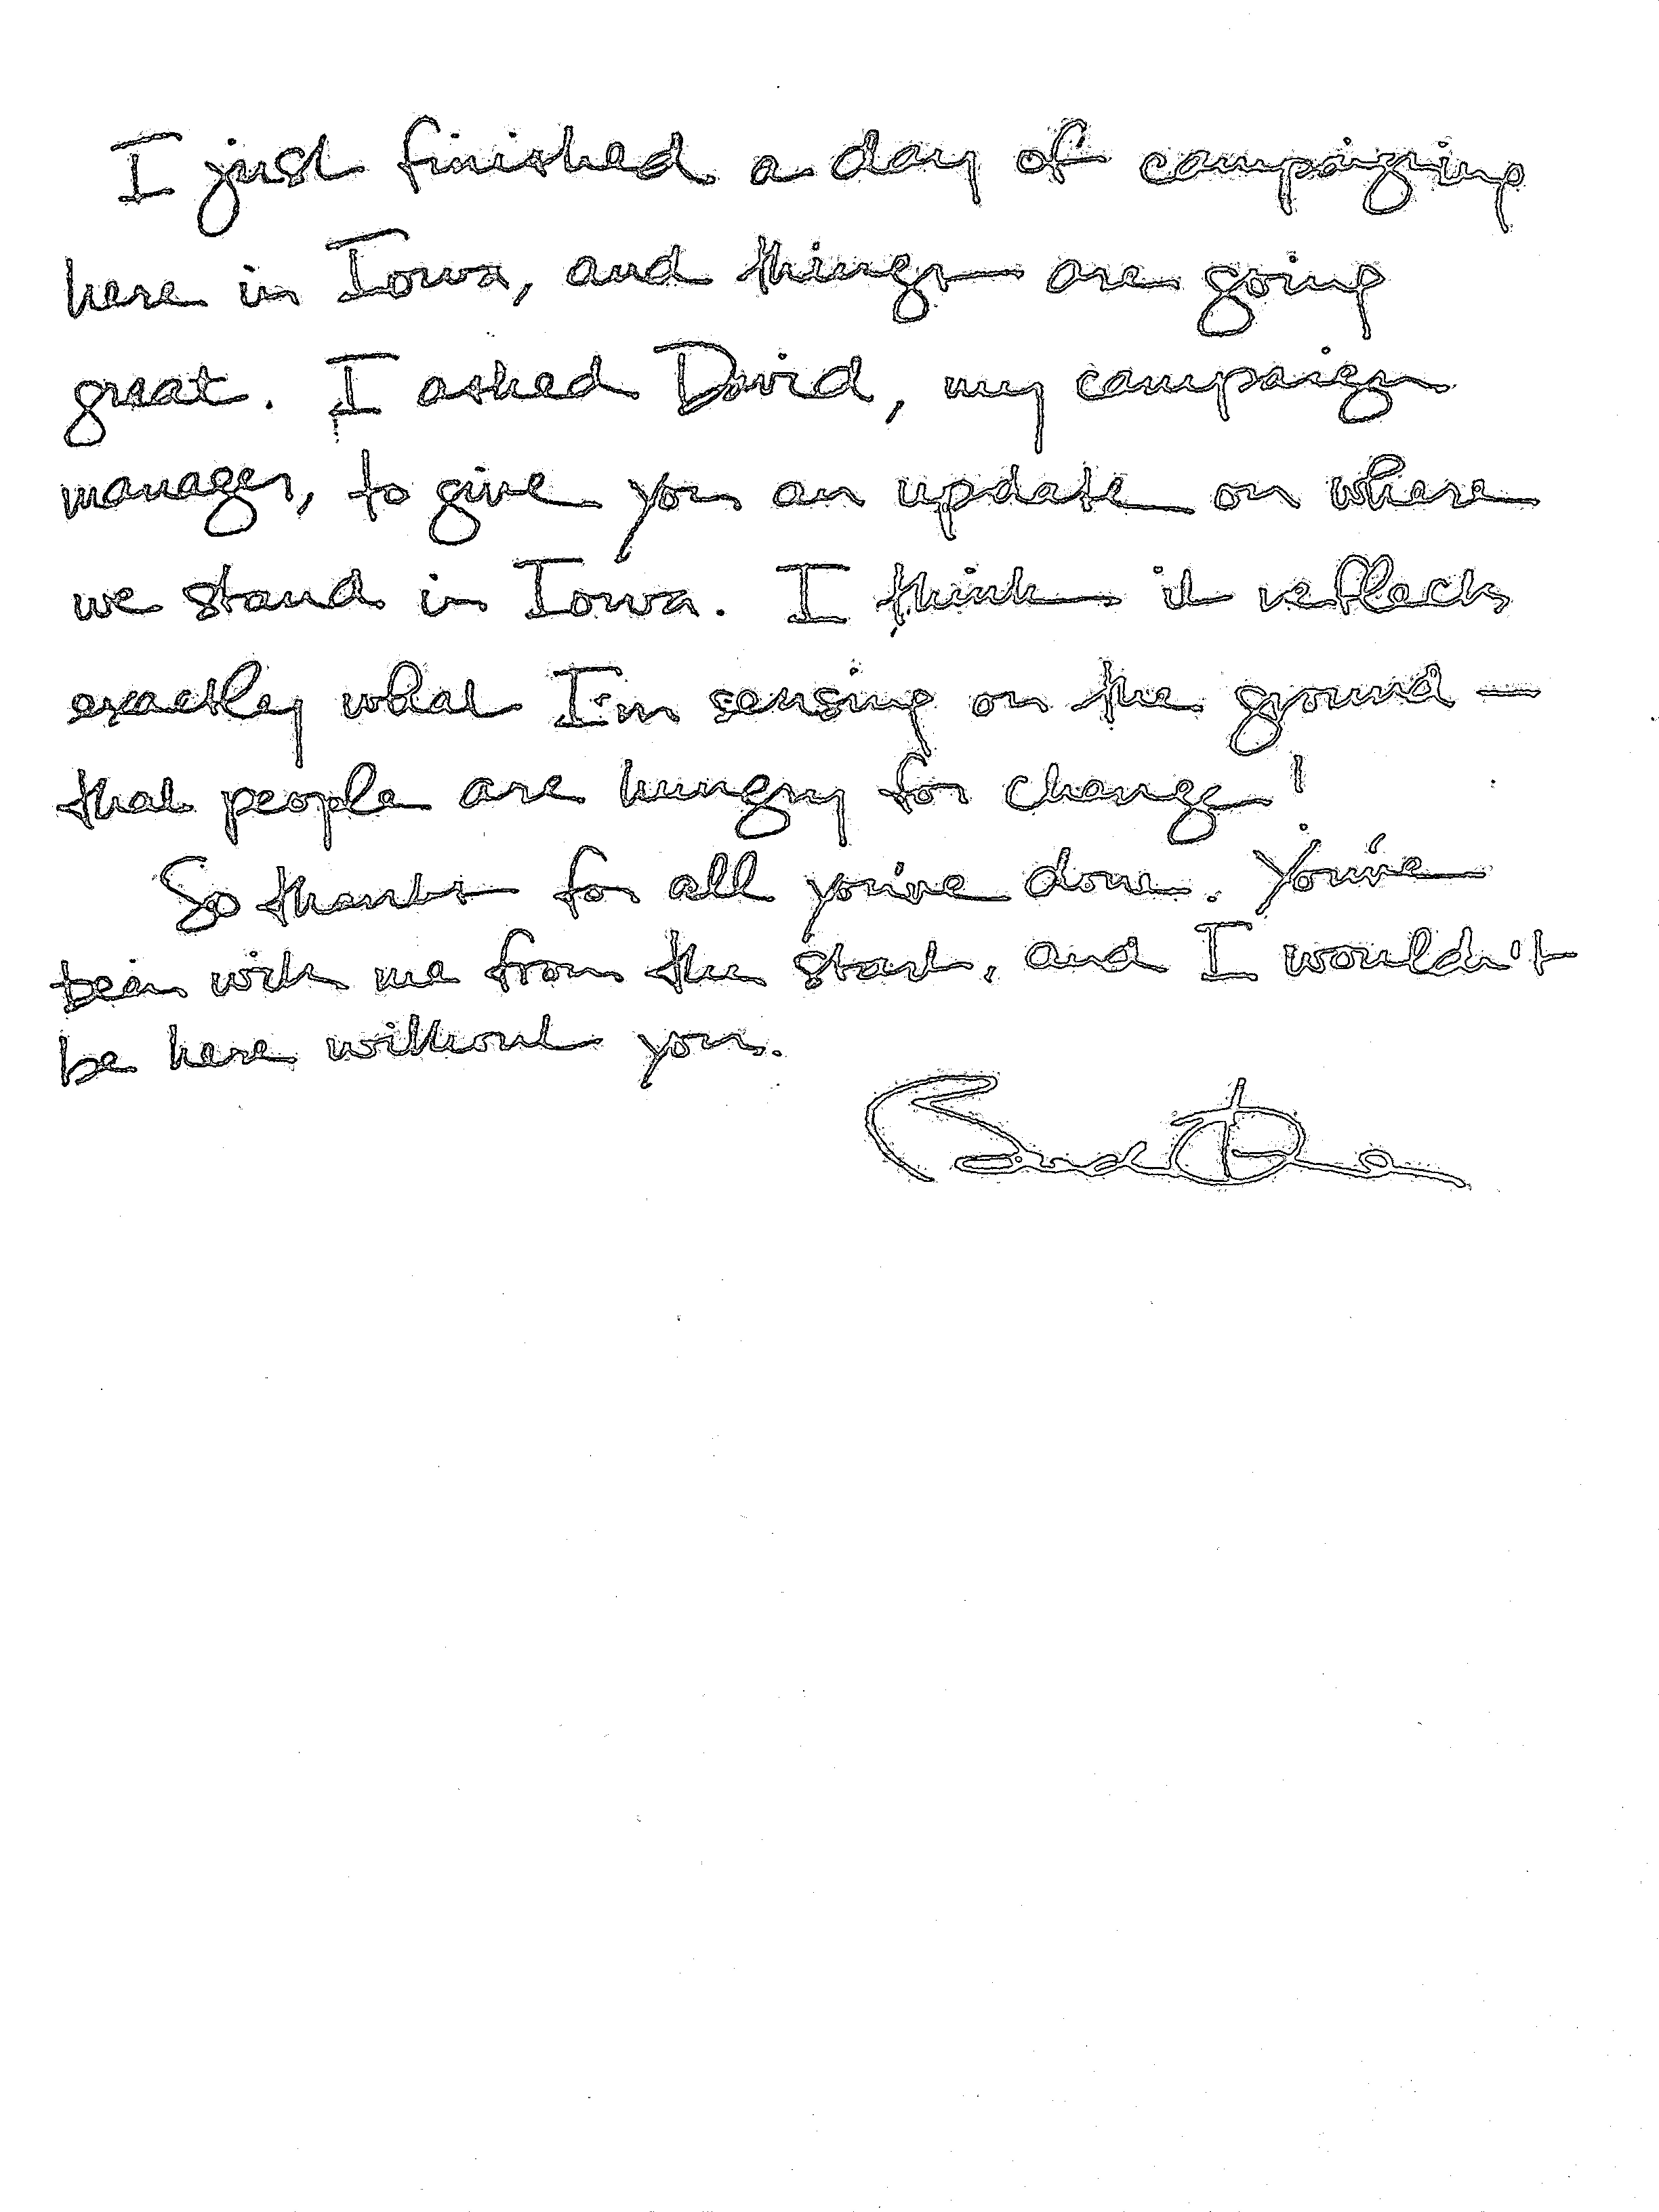 I just finished a day of campaigning
here in Iowa, and things are going
great. I asked David, my campaign
manager, to give you an update on where
we stand in Iowa. I think it reflects
exactly what I'm sensing on the ground —
that people are hungry for change!
So thanks for all you've done. You've
been with me from the start, and I wouldn't
be here without you.
Barack Obama